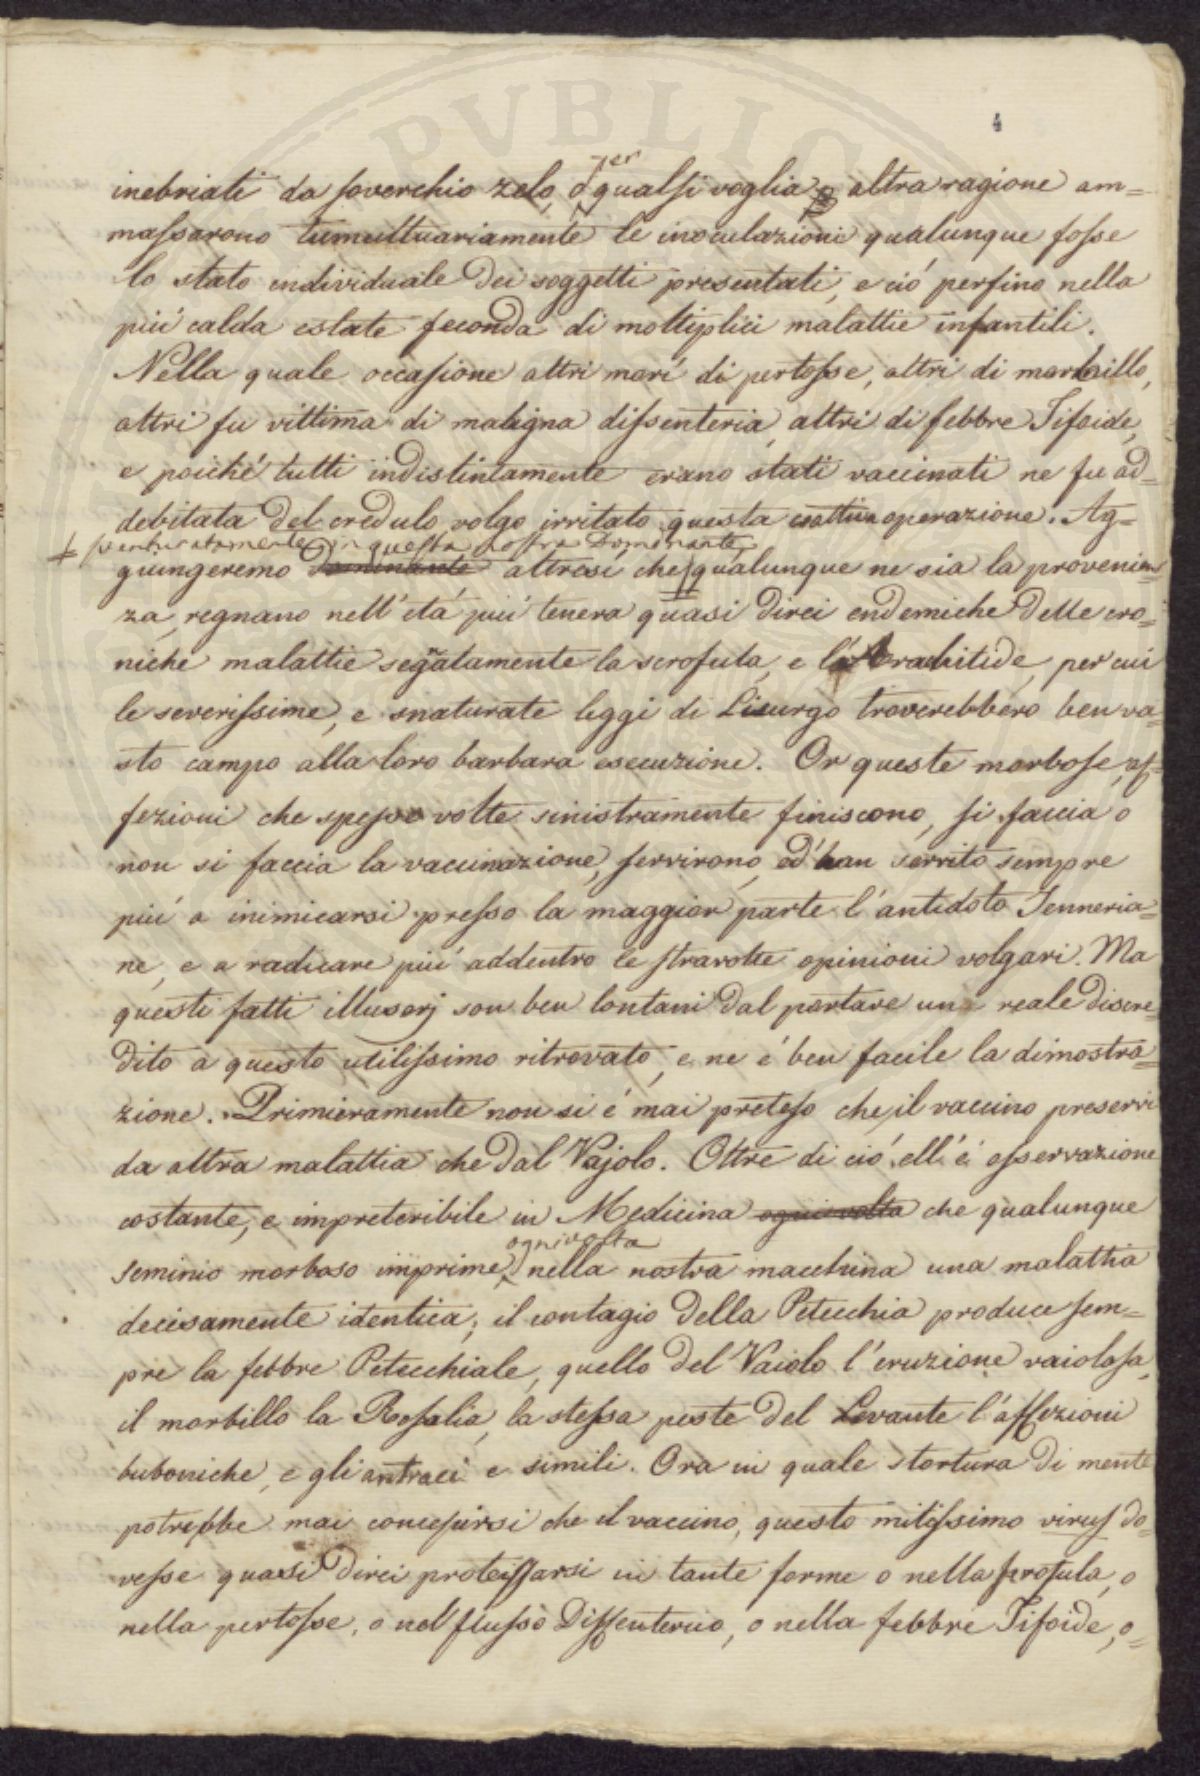 PVBLIC
4
inebriati da soverchio zelo, o per qualsi voglia altra ragione am=
massarono tumultuariamente le inoculazioni qualunque fosse
lo stato individuale dei soggetti presentati, e ció perfino nella
piú calda estate feconda di moltiplici malattie infantili.
Nella quale occasione altri morí di pertosse, altri di morbillo,
altri fu vittima di maligna dissenteria, altri di febbre Tifoide,
e poiché tutti indistintamente erano stati vaccinati ne fu ad=
debitata del credulo volgo irritato questa operazione. Ag=
sventuratamente in questa nostra Dominante
giungeremo Dominante altresi che qualunque ne sia la provenien
za, regnano nell'etá piú tenera quasi direi endemiche delle cro=
niche malattie segñatamente la scrofula, e la rachitide, per cui
le severissime, e snaturate leggi di Licurgo troverebbero ben va=
sto campo alla loro barbara esecuzione. Or queste morbose af=
fezioni che spesse volte sinistramente finiscono, si faccia o
non si faccia la vaccinazione, servirono, ed han servito sempre
piú a inimicarsi presso la maggior parte l'antidoto Jenneria=
ne, e a radicare piú addentro le stravolte opinioni volgari. Ma
questi fatti illusorj son ben lontani dal portare una reale discre=
dito a questo utilissimo ritrovato, e ne é ben facile la dimostra=
zione. Primieramente non si é mai preteso che il vaccino preservi
da altra malattia che dal Vajolo. Oltre di ció ell'é osservazione
costante, e impreteribile in Medicina ogni volta che qualunque
ognivolta
seminio morboso imprime nella nostra macchina una malattia
decisamente identica; il contagio della Petecchia produce sem=
pre la febbre Petecchiale, quello del Vaiolo l'eruzione vaiolosa,
il morbillo la Rosalia, la stessa peste del Levante l'affezioni
buboniche, e gli antraci e simili. Ora in quale stortura di mente
potrebbe mai concepirsi che il vaccino, questo mitissimo virus do=
vesse quasi direi proteissarsi in tante forme o nella scrofula, o
nella pertosse, o nel flusso Dissenterico, o nella febbre Tifoide, o=